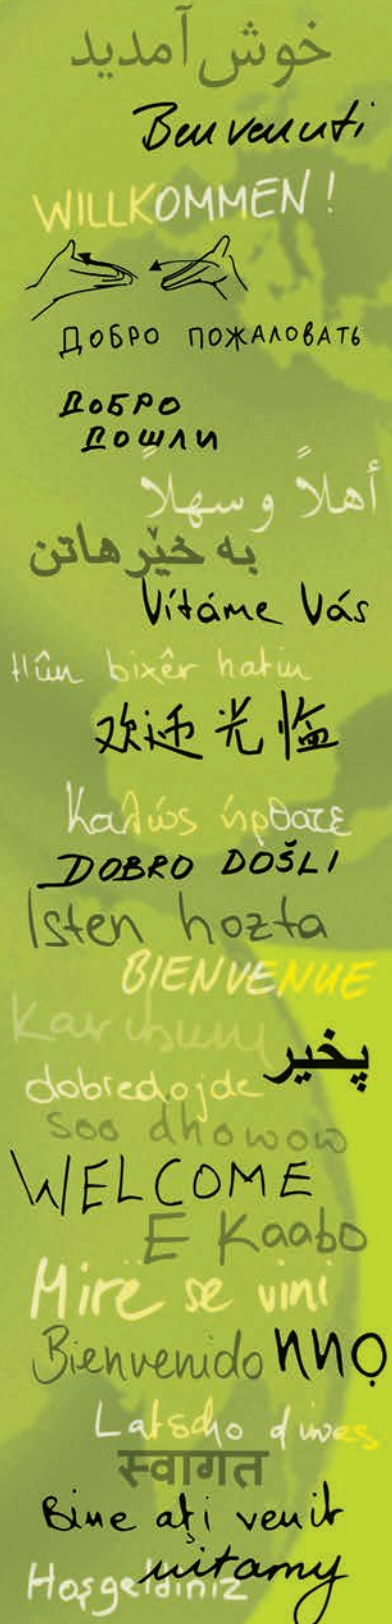 خوش آمدید
Benvenuti
WILLKOMMEN !
ДОБРО ПОЖАЛОВАТЬ
ДОБРО
ДОШЛИ
أهلاً و سهلاً
به خێر هاتن
Vítáme Vás
Hûn bixêr hatin
欢迎光临
Καλώς ήρθατε
DOBRO DOŠLI
Isten hozta
BIENVENUE
پخیر
dobredojde
Soo dhowow
WELCOME
E Kaabo
Mirë se vini
Bienvenido
Latscho diwes
स्वागत
Bine aţi venit
witamy
Hoşgeldiniz